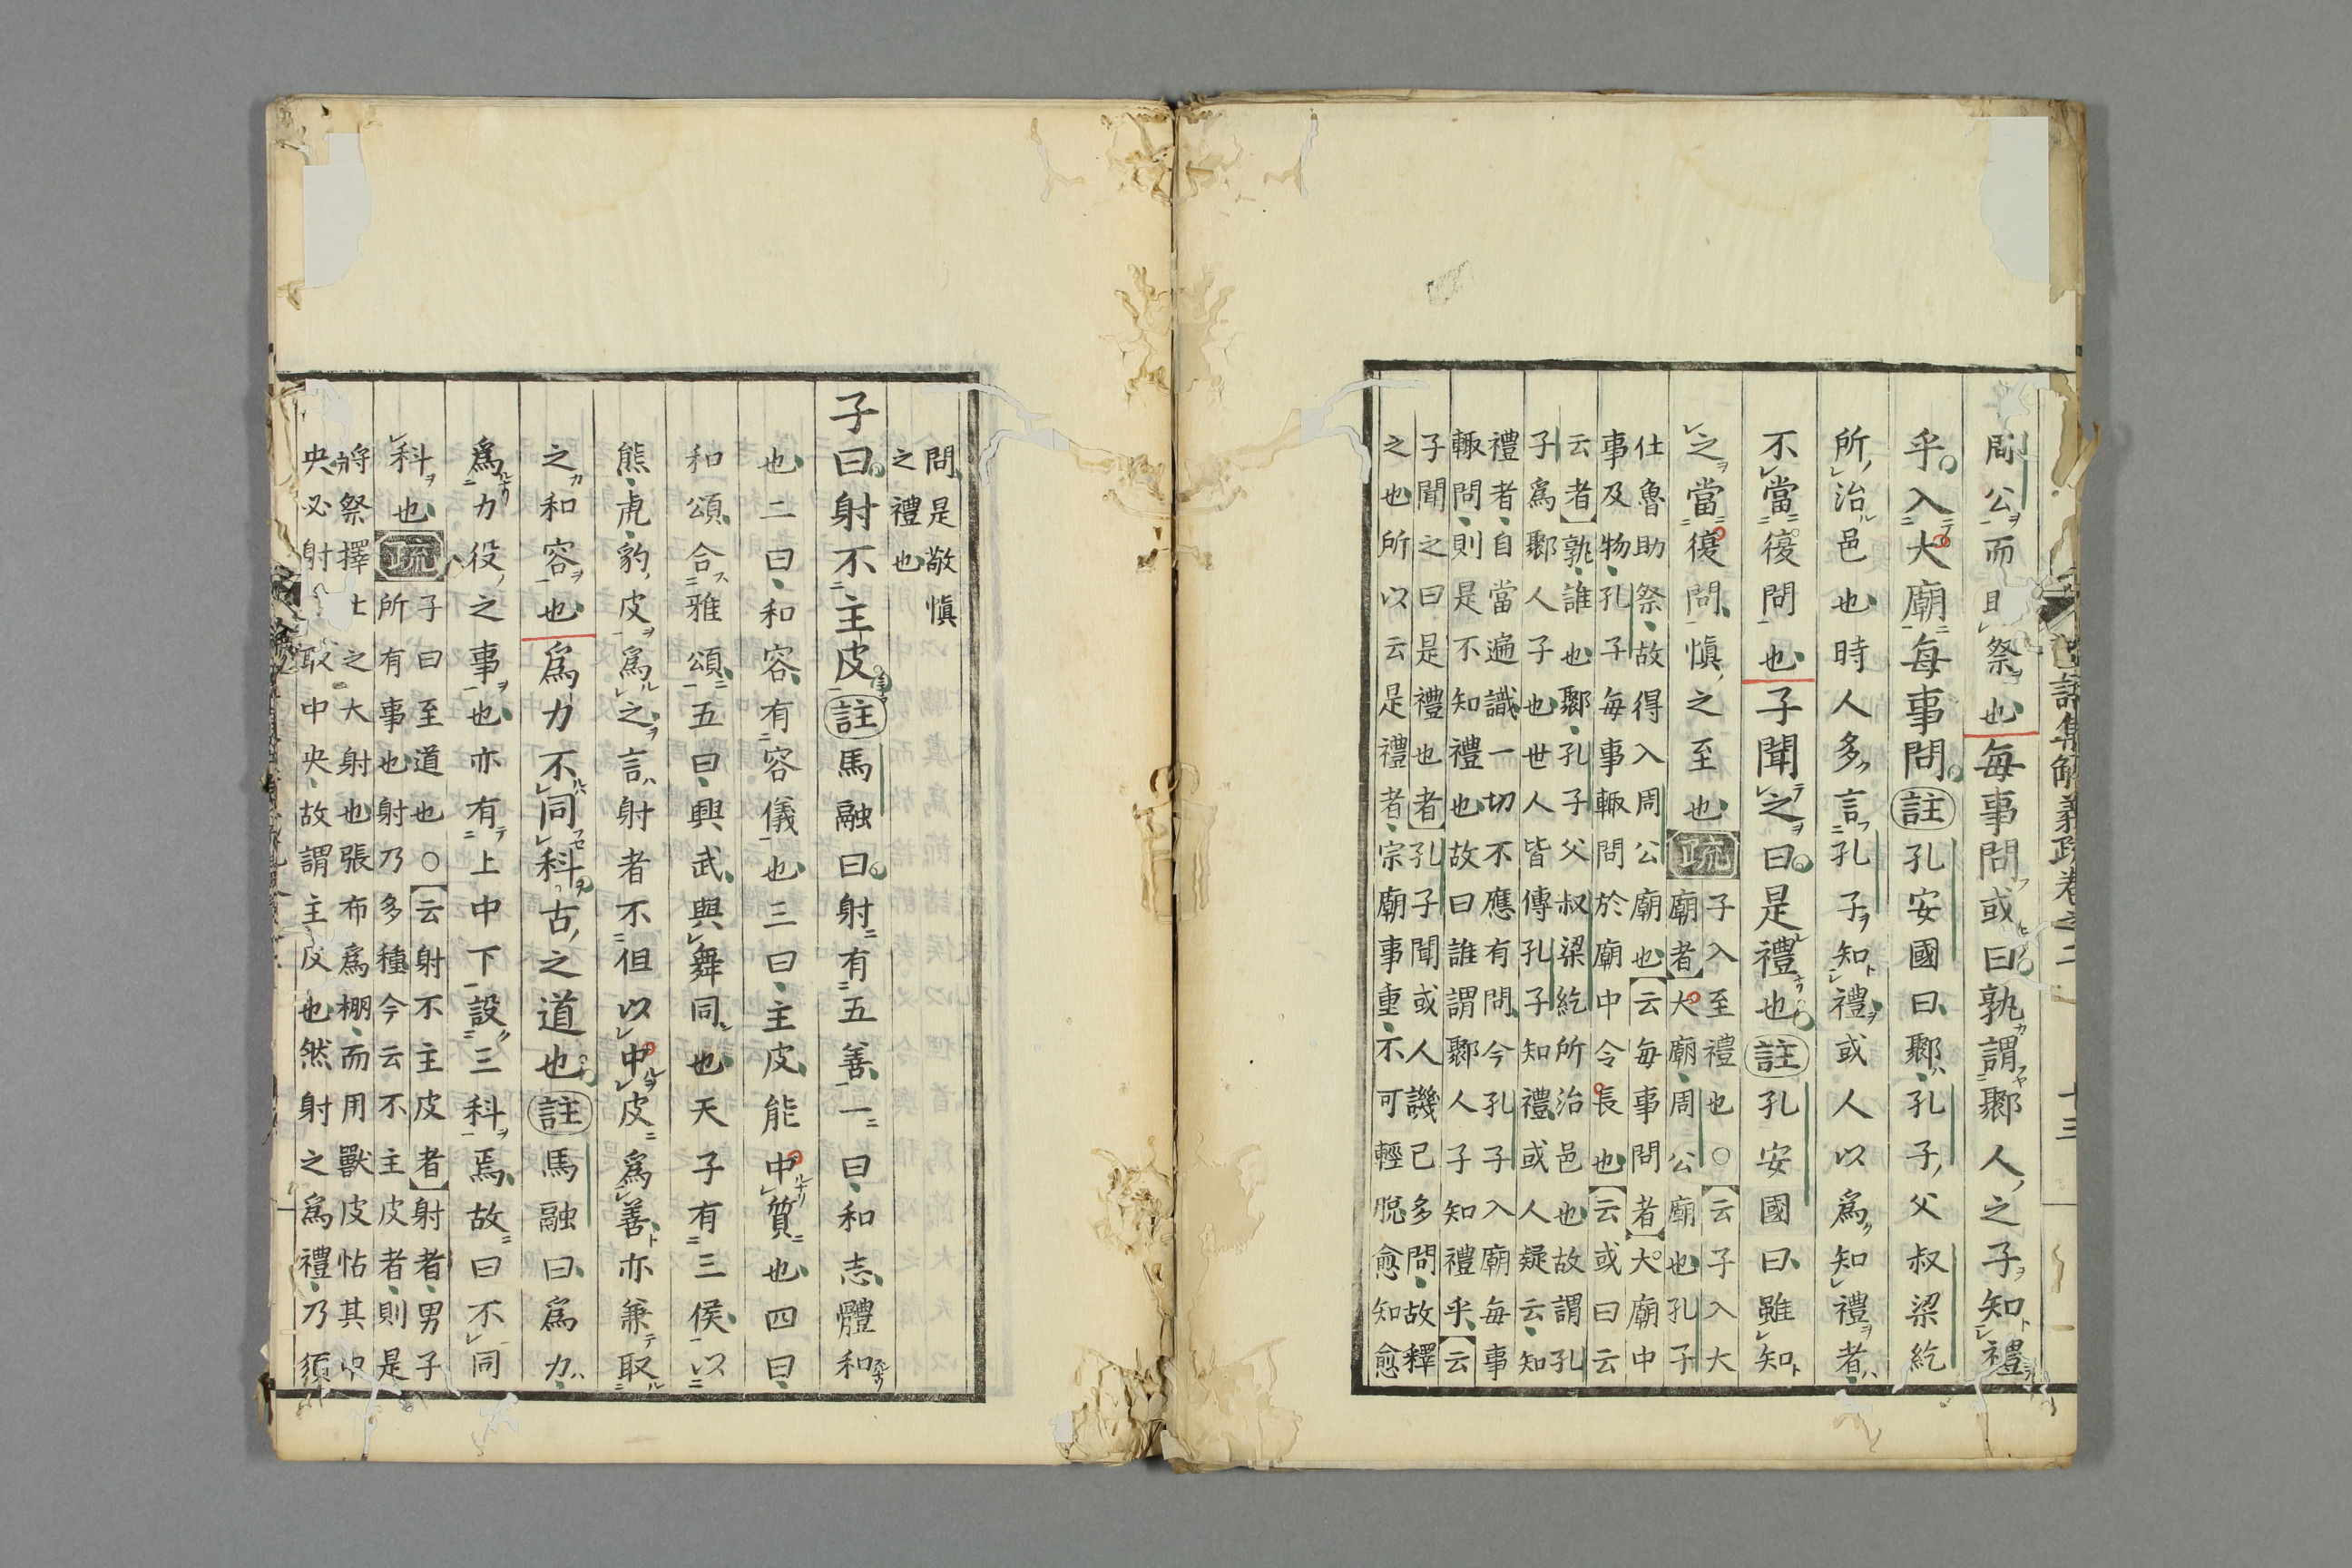 周公而助祭也每事問或曰孰謂鄹人之子知禮
乎入大廟每事問註孔安國曰鄹孔子父叔梁紇
所治邑也時人多言孔子知禮或人以爲知禮者
不當復問也子聞之曰是禮也註孔安國曰雖知
之當復問慎之至也疏子入至禮也○云子入大
廟者大廟周公廟也孔子
仕魯助祭故得入周公廟也云每事問者大廟中
事及物孔子每事輙問於廟中令長也云或曰云
云者孰誰也鄹孔子父叔梁紇所治邑也故謂孔
子爲鄹人子也世人皆傳孔子知禮或人疑云知
禮者自當遍識一切不應有問今孔子入廟每事
輙問則是不知禮也故曰誰謂鄹人子知禮乎云
子聞之曰是禮也者孔子聞或人譏己多問故釋
之也所以云是禮者宗廟事重不可輕脫愈知愈
問是敬慎
之禮也
子曰射不主皮註馬融曰射有五善一曰和志體和
也二曰和容有容儀也三曰主皮能中質也四曰
和頌合雅頌五曰興武與舞同也天子有三侯以
熊虎豹皮爲之言射者不但以中皮爲善亦兼取
之和容也爲力不同科古之道也註馬融曰爲力
爲力役之事也亦有上中下設三科焉故曰不同
科也疏子曰至道也○云射不主皮者射者男子
所有事也射乃多種今云不主皮者則是
將祭擇士之大射也張布爲棚而用獸皮帖其中
央必射取中央故謂主皮也然射之爲禮乃須